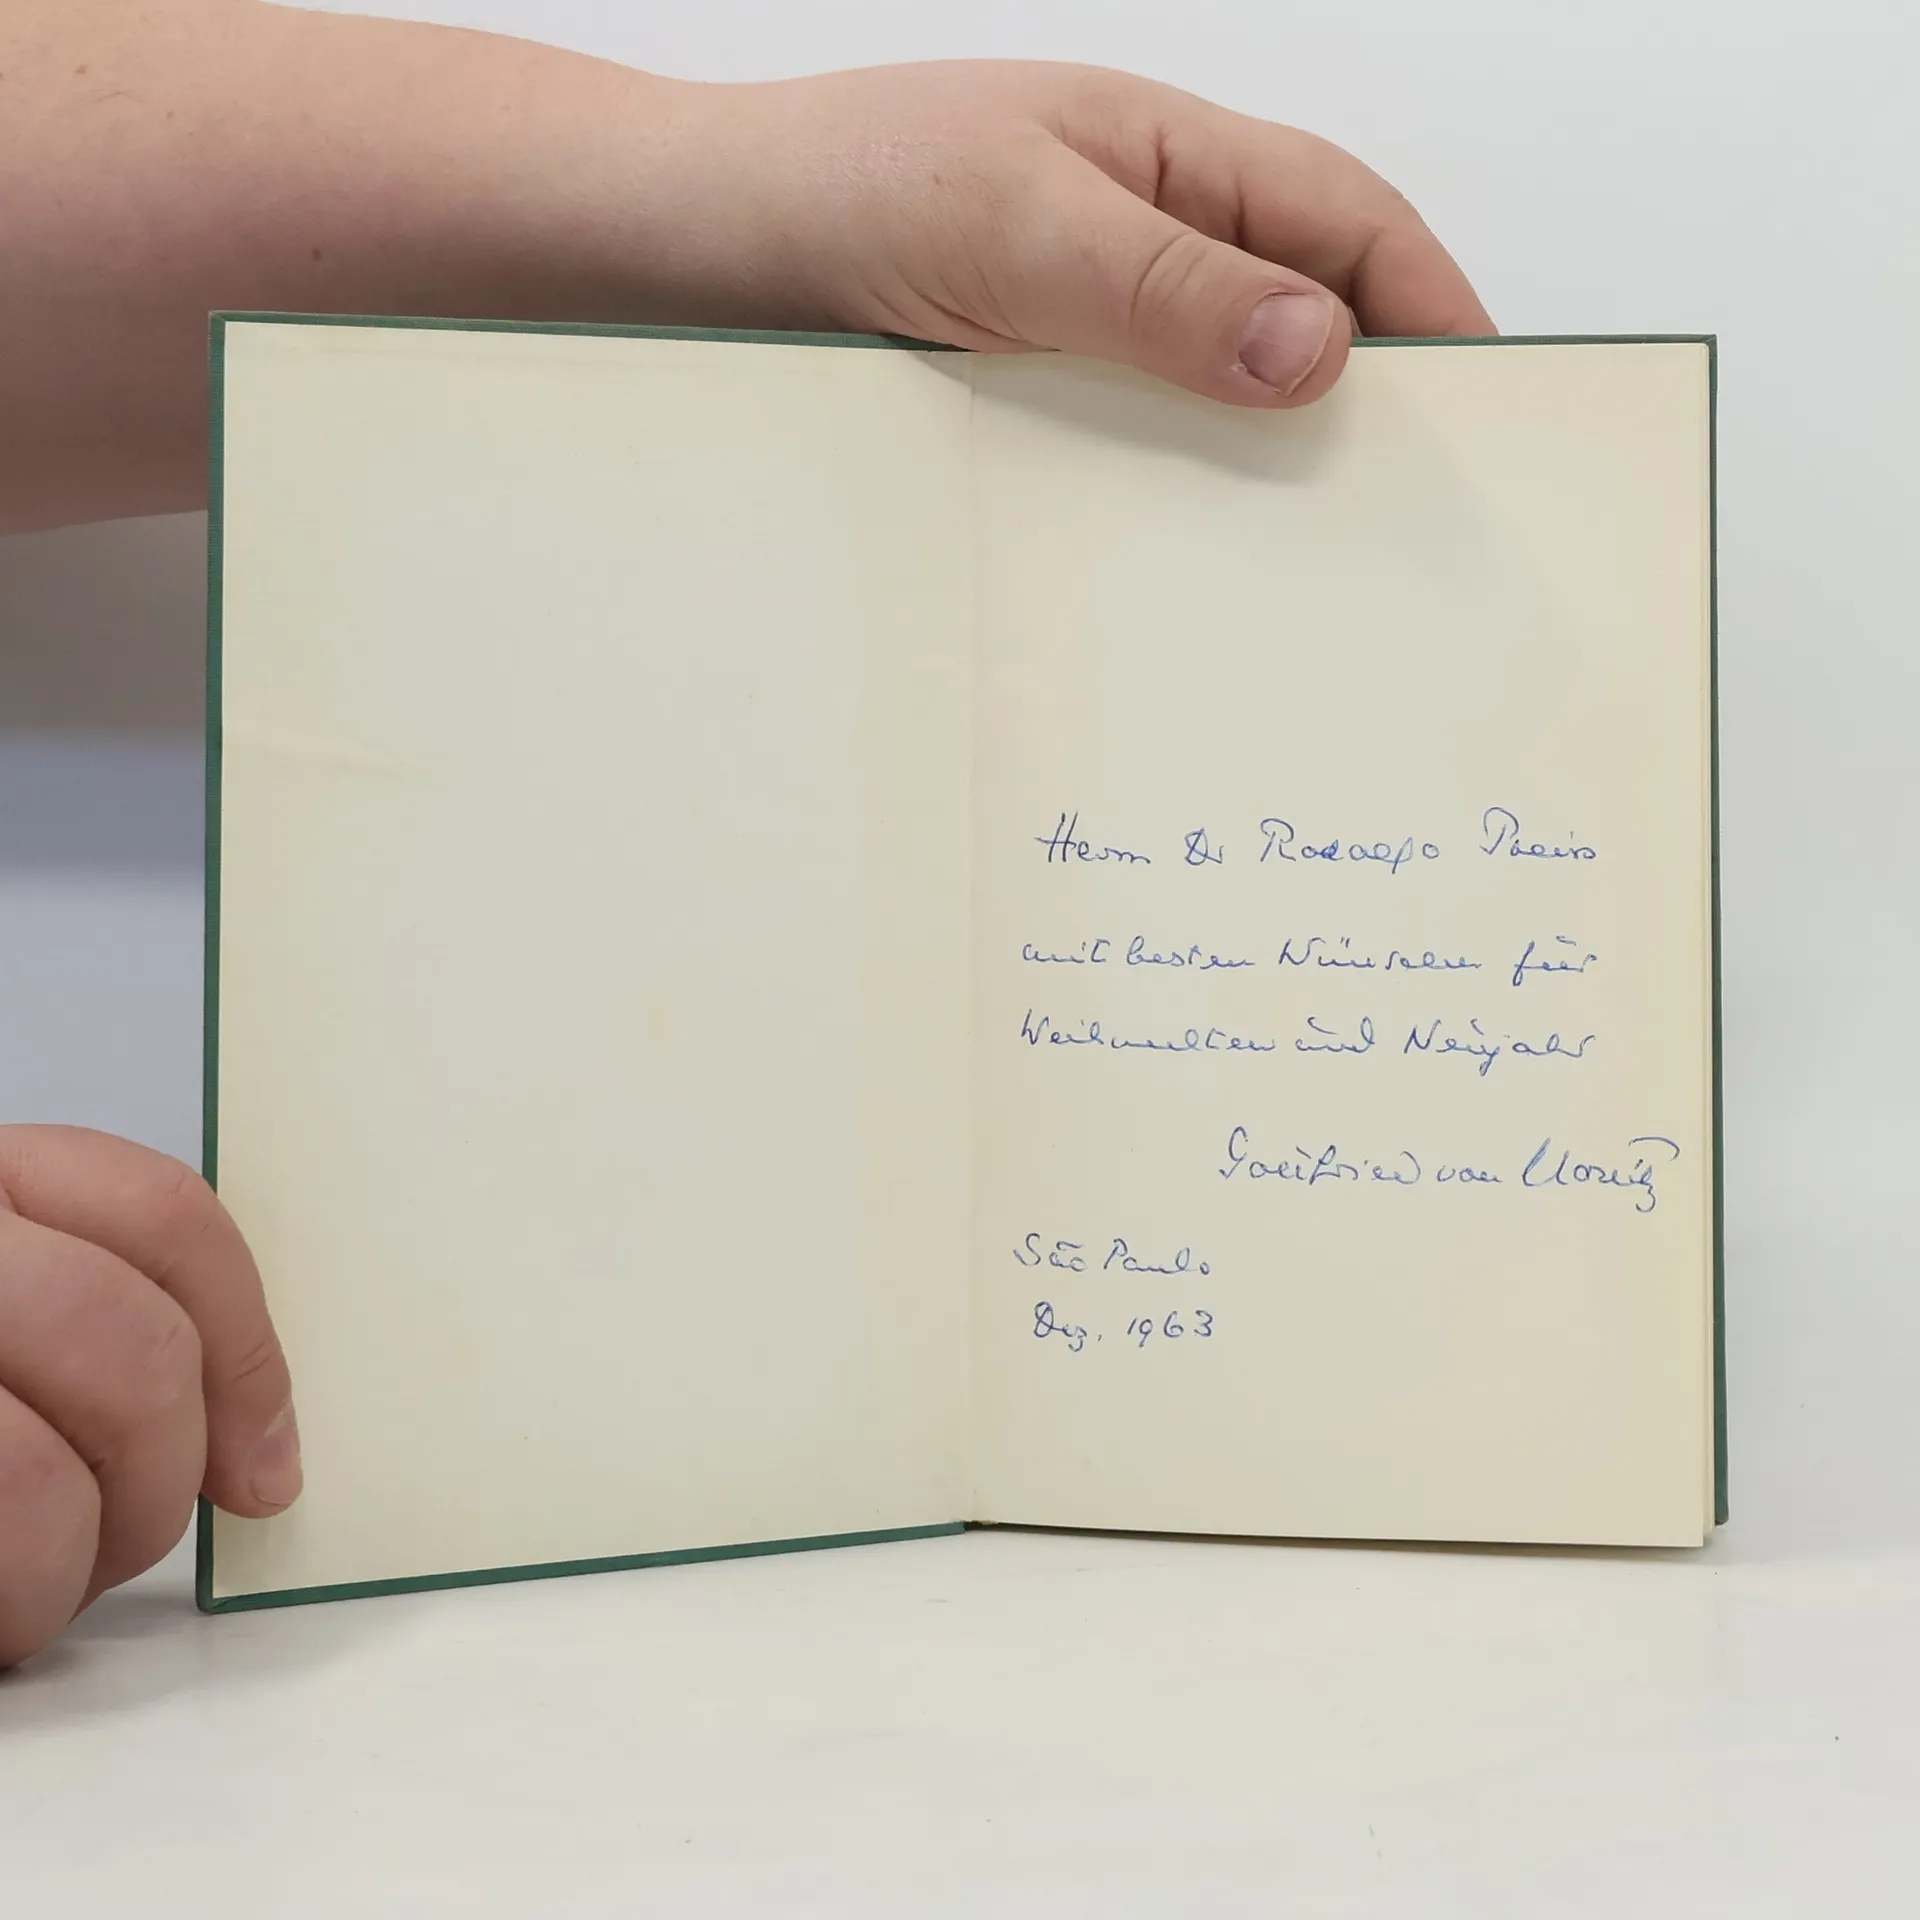 Herrn Dr Rodolfo
mit besten Wünschen für
Weihnachten und Neujahr
Gottfried von
São Paulo
Dez. 1963